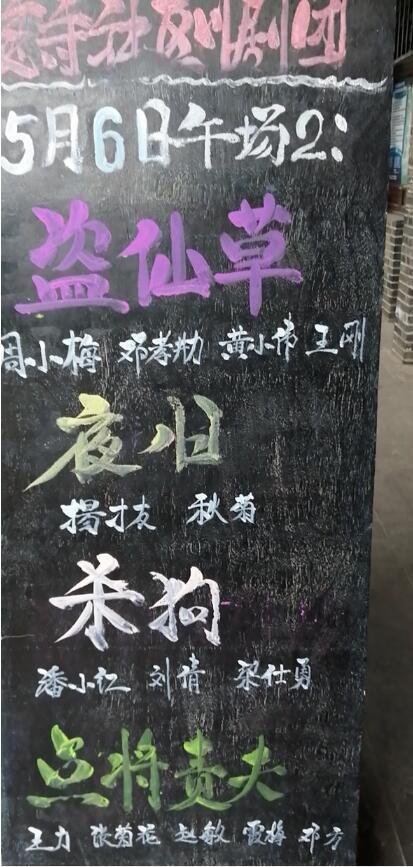 川剧团
5月6日午场2:
盗仙草
周小梅 邓孝勋 黄小伟 王刚
夜归
杨才友 秋菊
杀狗
潘小红 刘倩 梁仕勇
点将责夫
王力 张菊花 赵敏 霞梅 邓方